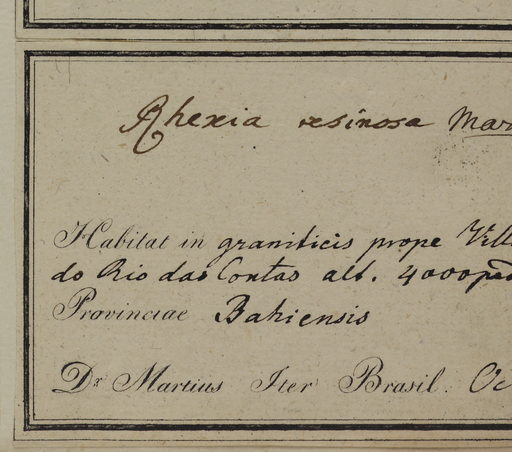 Rhexia resinosa Mar
Habitat in graniticis prope Vill
do Rio das Contas alt. 4000 ped
Provinciae Bahiensis
Dr. Martius Iter Brasil. Oc